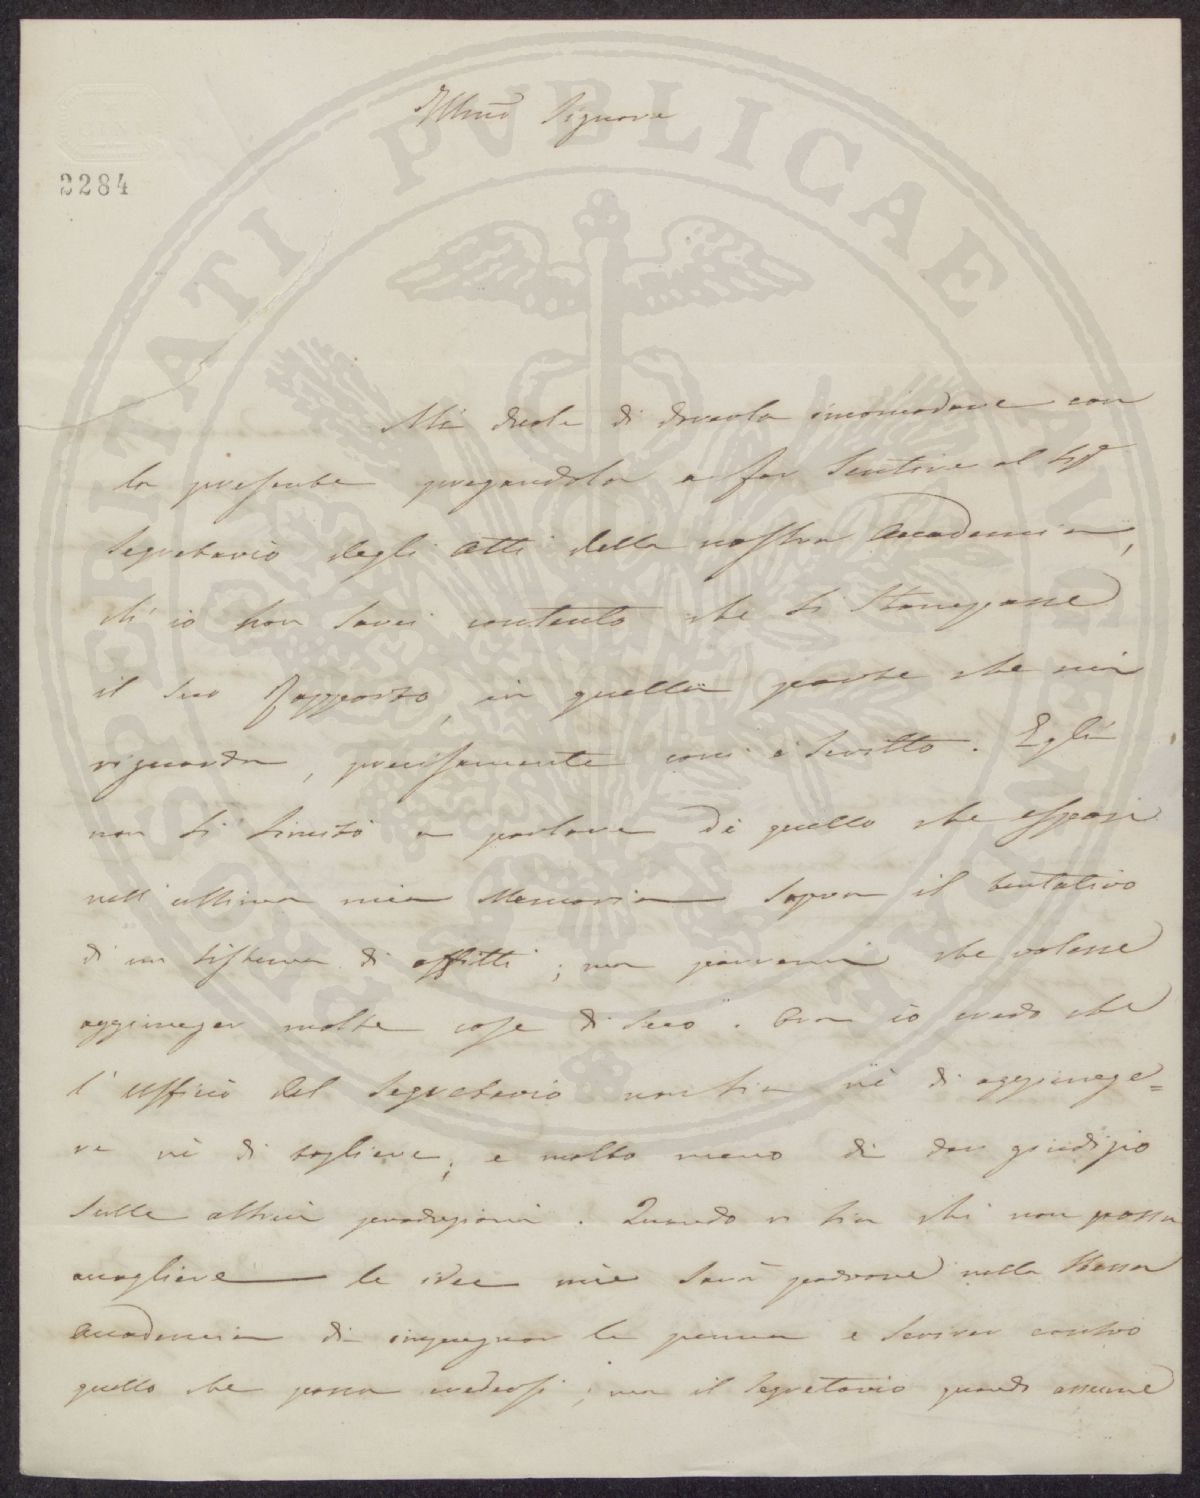 Illmo Signore
2284
Mi duole di doverla incomodare con
la presente pregandola a far sentire al Sigr
Segretario degli Atti della nostra Accademia,
ch' io non sarei contento che si stampasse
il suo Rapporto, in quella parte che mi
riguarda, precisamente com' è scritto. Egli
non si limitò a parlare di quello che esposi
nell' ultima mia Memoria sopra il tentativo
di un sistema di affitti; ma parvemi che volesse
aggiunger molte cose di suo. Ora io credo che
l' uffiuio del Segretario non sia nè di aggiunge=
re nè di togliere, e molto meno di dar giudizio
sulle altrui produzioni. Quando vi sia chi non possa
accogliere le idee mie sarà padrone nella stessa
Accademia di impugnar la penna e scriver contro
quello che possa credersi; ma il Segretario quando assume
PROSPERITATI PVBLICAE AVGENDAE